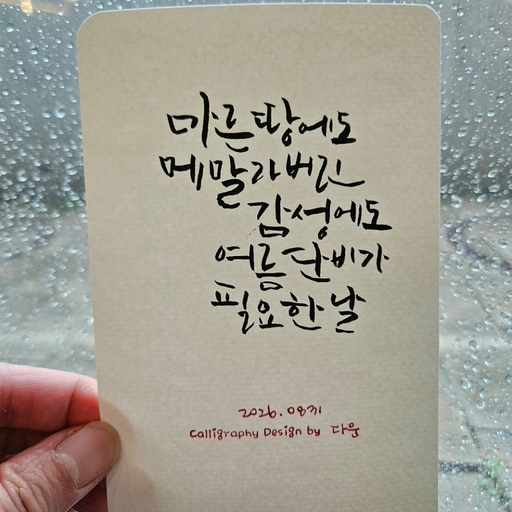 마른 땅에도
메말라버린
감성에도
여름 단비가
필요한 날
2026.0831
Calligraphy Design by 다운